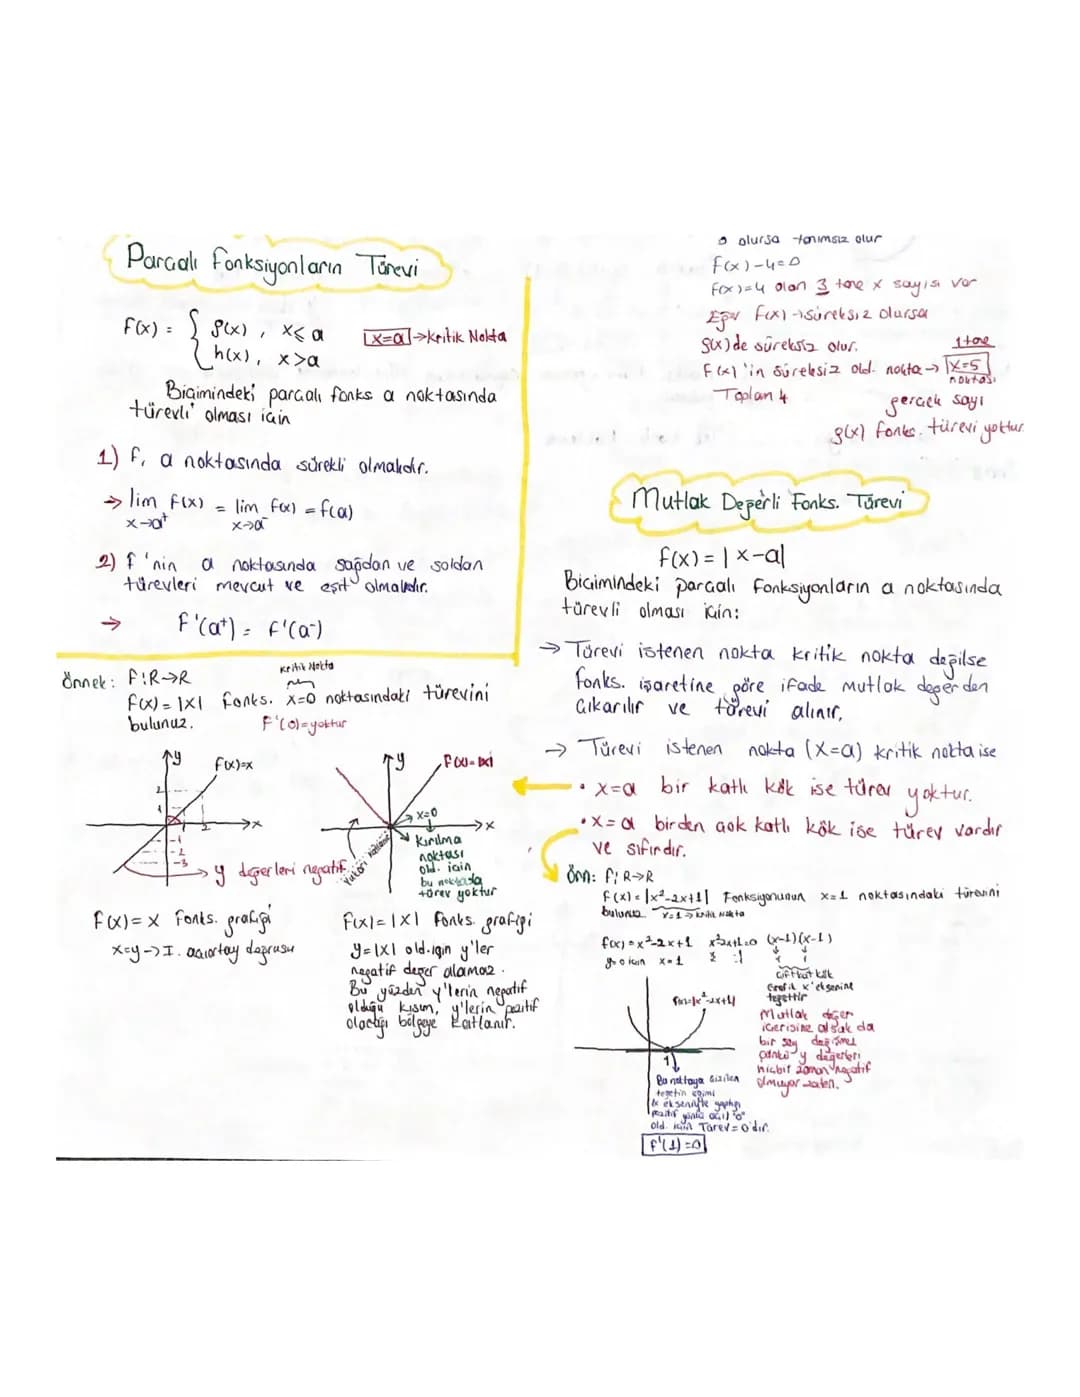 Parçalı Fonksiyonların Türevi
f(x) = { g(x), x≤a
h(x), x>a
x=a → Kritik Nokta
Biçimindeki parçalı fonks a noktasında
türevli olması için
1) f, a noktasında sürekli olmalıdır.
→ lim f(x) = lim f(x) = f(a)
x→a⁺ x→a⁻
2) f'nin a noktasında sağdan ve soldan
türevleri mevcut ve eşit olmalıdır.
→ f'(a⁺) = f'(a⁻)
Örnek: f:R→R
Kritik Nokta
f(x) = |x| fonks. x=0 noktasındaki türevini
bulunuz. f'(0)=yoktur
y
f(x)=x
2
1
1 2
x
-1
-2
-3
y değerleri negatif
y
f(x)=|x|
x=0
x
Kırılma
noktası
old. için
bu noktada
türev yoktur
f(x)=x Fonks. grafiği
x=y → I. açıortay doğrusu
f(x)=|x| Fonks. grafiği
y=|x| old.için y'ler
negatif değer alamaz.
Bu yüzden y'lerin negatif
olduğu kısım, y'lerin pozitif
olacağı bölgeye katlanır.
0 olursa tanımsız olur
f(x)-4=0
f(x)=4 olan 3 tane x sayısı var
Eğer f(x) → süreksiz olursa
g(x) de süreksiz olur.
1 tane
f(x)'in süreksiz old. nokta → x=5
noktası
Toplam 4
gerçek sayı
g(x) fonks. türevi yoktur
Mutlak Değerli Fonks. Türevi
f(x) = |x-a|
Biçimindeki parçalı Fonksiyonların a noktasında
türevli olması için:
→ Türevi istenen nokta kritik nokta değilse
fonks. işaretine göre ifade mutlak değerden
çıkarılır ve türevi alınır.
→ Türevi istenen nokta (x=a) kritik nokta ise
• x=a bir katlı kök ise türev yoktur.
• x=a birden çok katlı kök ise türev vardır
ve sıfırdır.
Örn: f:R→R
f(x)=|x²-2x+1| Fonksiyonunun x=1 noktasındaki türevini
bulunuz x=1 → kritik nokta
f(x)=x²-2x+1 x²-2x+1=0 (x-1)(x-1)
y=0 için x=1
çift kat kök
Grafik x' eksenine
teğettir
f(x)=|x²-2x+1|
1
Mutlak değer
içerisine alsak da
bir şey değişmez
çünkü y değerleri
hiçbir zaman negatif
olmuyor zaten.
Bu noktaya çizilen
teğetin eğimi
x ekseniyle yaptığı
pozitif yönlü açı "0"
old. için Türev=0'dır.
f'(1)=0